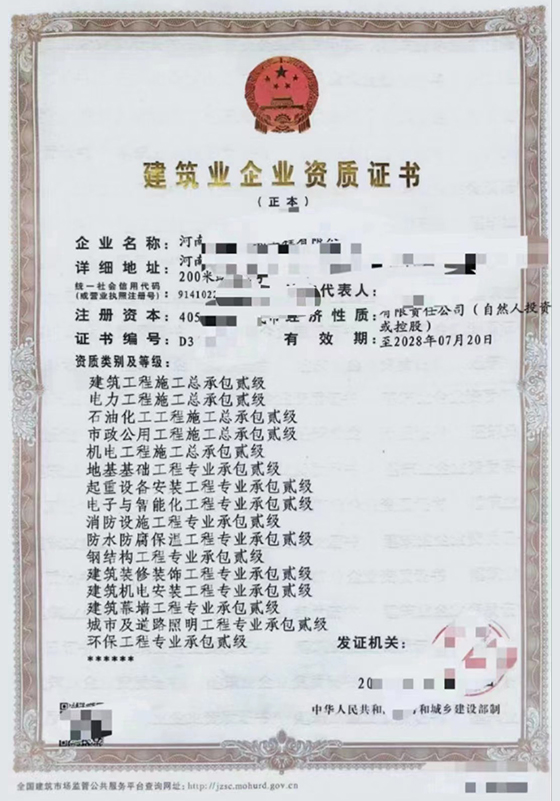 建筑业企业资质证书
（正本）
企业名称：河南
详细地址：河南
200米
统一社会信用代码
（或营业执照注册号）：9141022 代表人：
注册资本：405 经济性质：有限责任公司（自然人投资
或控股）
证书编号：D3 有效期：至2028年07月20日
资质类别及等级：
建筑工程施工总承包贰级
电力工程施工总承包贰级
石油化工工程施工总承包贰级
市政公用工程施工总承包贰级
机电工程施工总承包贰级
地基基础工程专业承包贰级
起重设备安装工程专业承包贰级
电子与智能化工程专业承包贰级
消防设施工程专业承包贰级
防水防腐保温工程专业承包贰级
钢结构工程专业承包贰级
建筑装修装饰工程专业承包贰级
建筑机电安装工程专业承包贰级
建筑幕墙工程专业承包贰级
城市及道路照明工程专业承包贰级
环保工程专业承包贰级
******
发证机关：
20
中华人民共和 和城乡建设部制
全国建筑市场监管公共服务平台查询网址：http://jzsc.mohurd.gov.cn